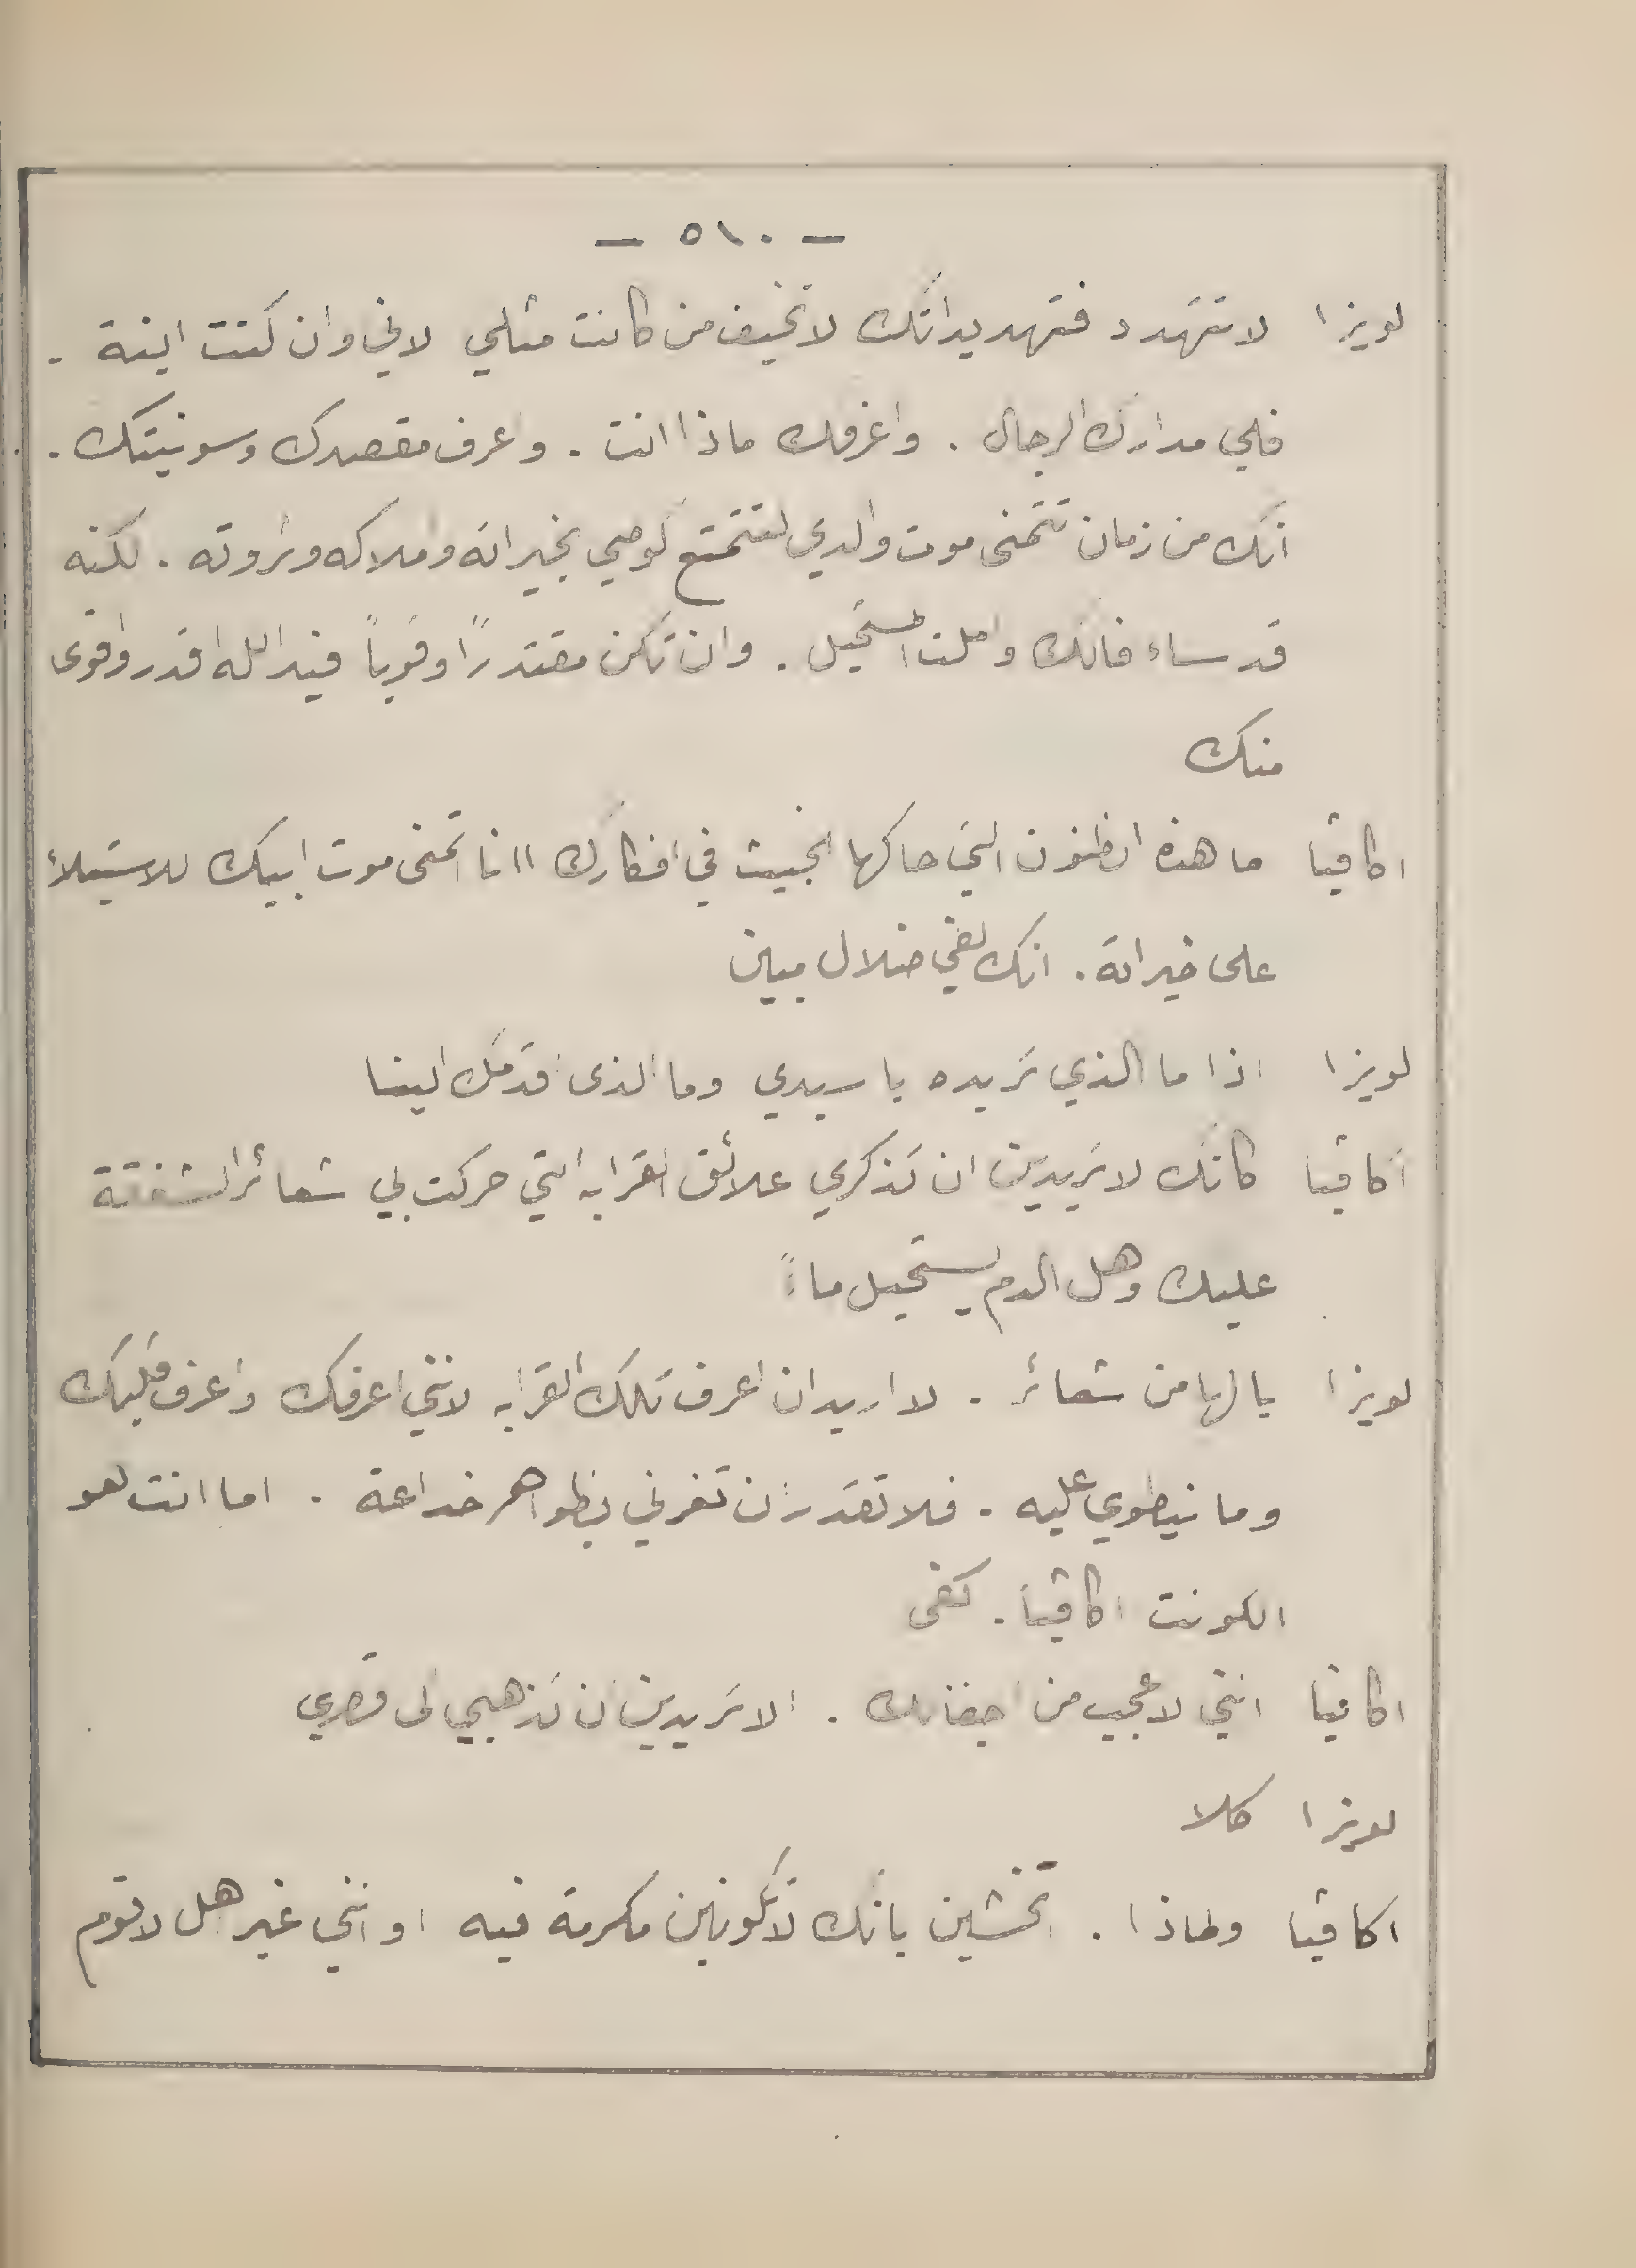 - ٥١٠ -
لويزا لا تتهدد فتهديداتك لا تخيف من كانت مثلي لاني وان كنت ابنة .
فلي مدارك الرجال . واعرفك ماذا انت . واعرف مقصدك وسو نيتك .
انك من زمان تتمنى موت والدي لتتمتع كوصي بخيراته واملاكه وثروته . لكنه
قد ساء فالك واملت المستحيل . وان تكن مقتدراً وقوياً فيد الله اقدر واقوى
منك
اكاقيا ما هذه الظنون التي حاكها الخبيث في افكارك اانا اتمنى موت ابيك للاستيلاء
على خيراته . انك لفي ضلال مبين
لويزا اذا ما الذي تريده يا سيدي وما الذى اقدمك الينا
اكاقيا كانك لا تريدين ان تذكري علائق القرابه التي حركت بي شعائر الشفقة
عليك وهل الدم يستحيل ماءً
لويزا يا لها من شعائر . لا اريد ان اعرف تلك القرابه لانني اعرفك واعرف قلبك
وما ينطوي عليه . فلا تقدر ان تغرني بظواهر خداعة . اما انت هو
الكونت اكاقيا . كفى
اكاقيا انني لاعجب من اجفائك . الا تريدين ان تذهبي الى قصري
لويزا كلا
اكاقيا ولماذا . اتخشين بانك لا تكونين مكرمة فيه او انني غير اهل لاقوم